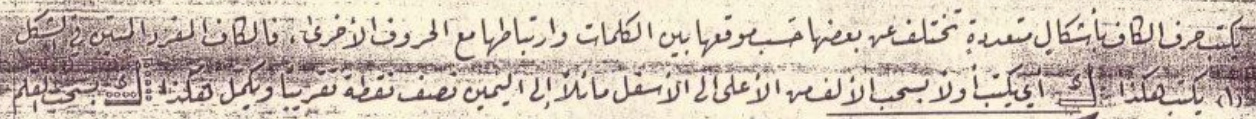 يكتب حرف الكاف بأشكال متعددة تختلف عن بعضها حسب موقعها بين الكلمات وارتباطها مع الحروف الأخرى. فالكاف المفرد المبين في الشكل
(١) يكتب هكذا ك أي يكتب أولاً بسحب الألف من الأعلى الى الأسفل مائلاً إلى اليمين نصف نقطة تقريباً ويكمل هكذا: ك بسحب القلم